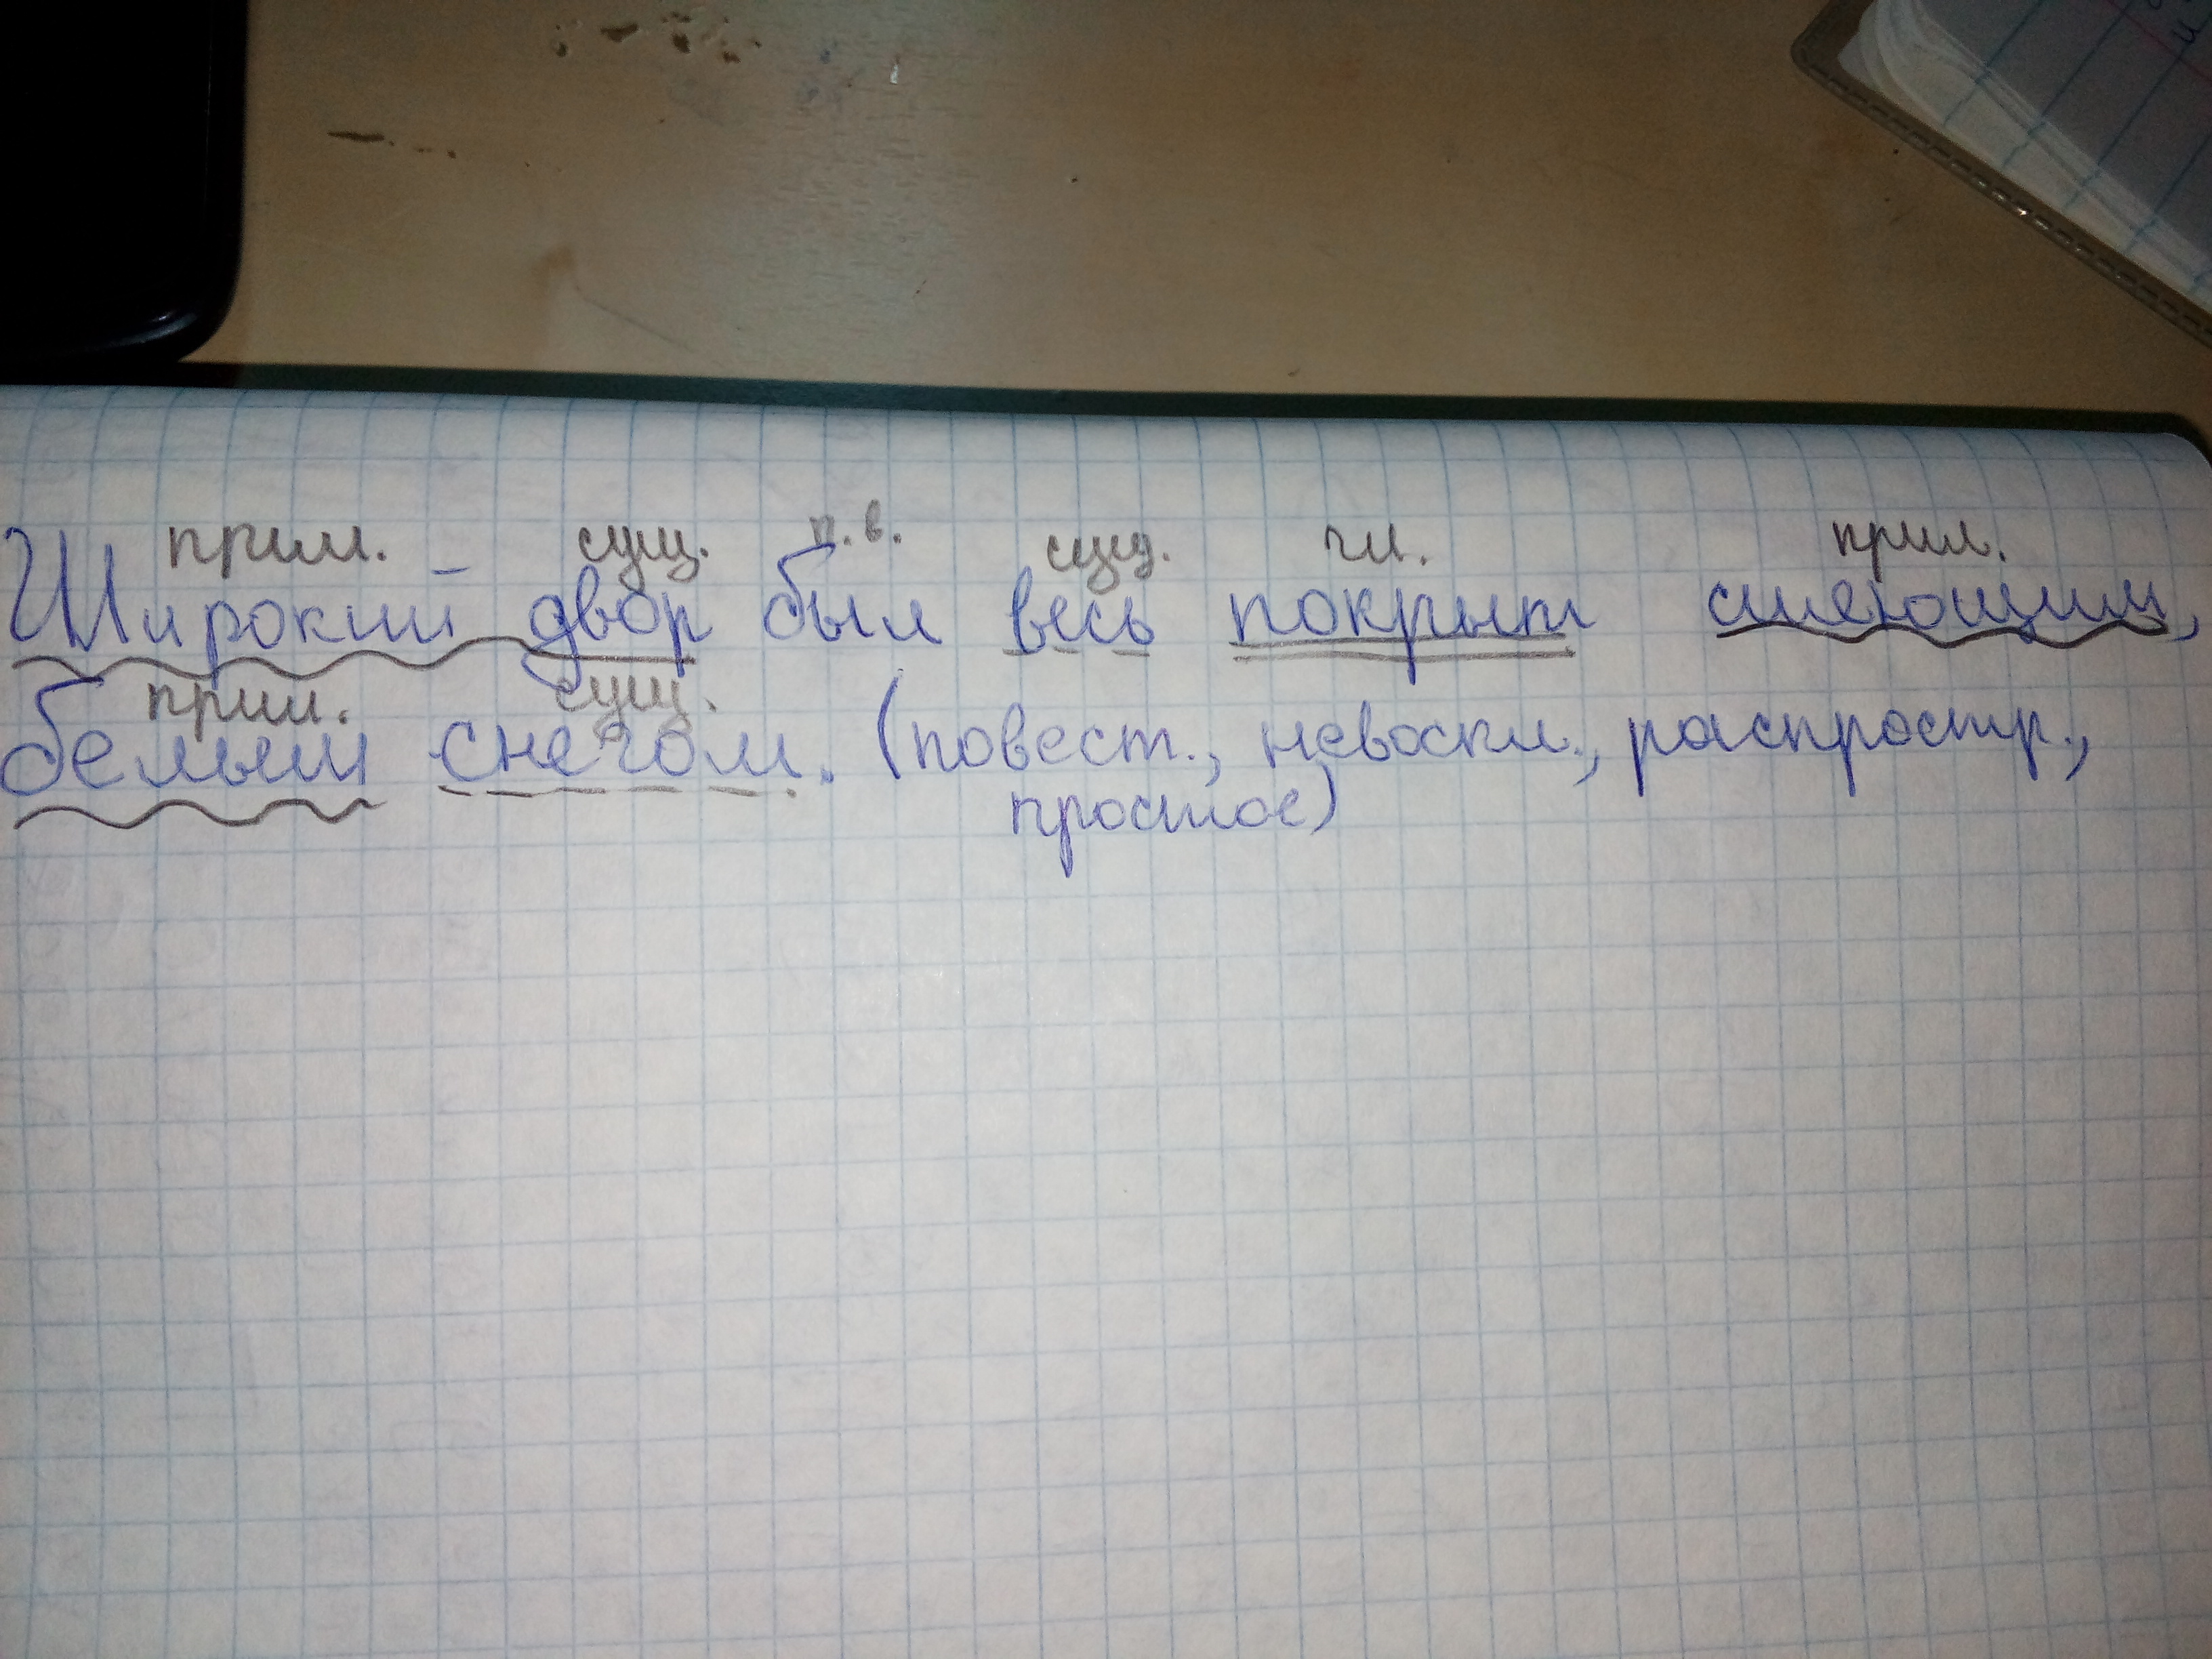 прил. сущ. п.в. сущ. гл. прил.
Широкий двор был весь покрыт сияющим,
прил. сущ.
белым снегом. (повест., невоскл., распростр.,
простое)